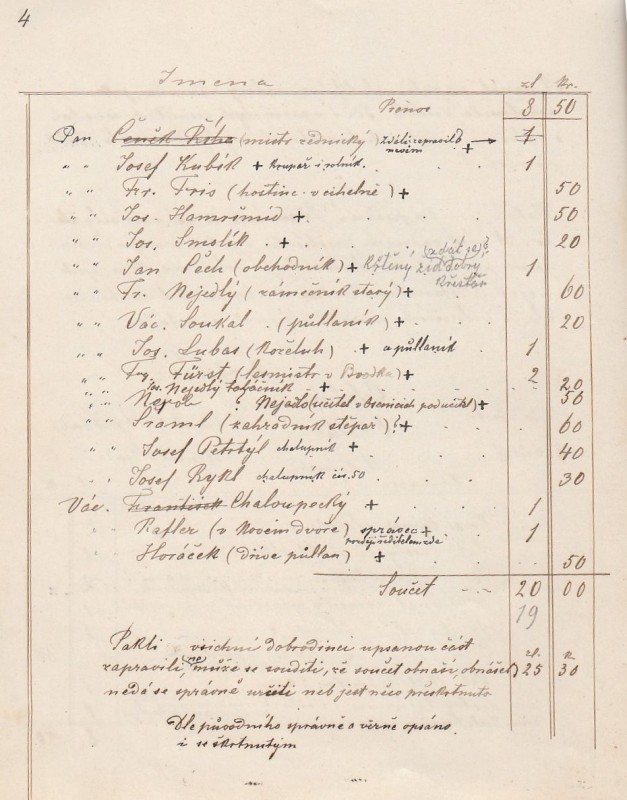 4
Imena zl. kr.
Přenos 8 50
Pan Čeněk Říha (mistr zednický) zdali zapravil nevím + → 1
" " Josef Kubík + krupař i rolník. 1
" " Fr. Fris (hostinc. v cihelně) + 50
" " Jos. Hamršmíd + 50
" " Jos. Smolík + 20
" " Jan Pech (obchodník) + Křtěný žid dobrý křesťan 1
" " Fr. Nejedlý (zámečník starý) + 60
" " Vác. Soukal (půllaník) + 20
" " Jos. Lubas (Kočeluh) + a půllaník 1
" " Frj. Fürst (lesmistr v Brodka) + 2
Jos. Nejedlý + 20
" " " Nejedlo (učitel v Osenicích podučitel) + 50
" " Šraml (zahradník štěpař) ! + 60
" " Josef Petrtýl chalupník + 40
" " Josef Rykl chalupník čís. 50 30
Vác. František Chaloupecký + 1
" Rafler (v Novém dvoře) správec + později ředitelem zde 1
" Horáček (dříve půllan) + 50
Součet 20 00
19
Pakli všichni dobrodinci upsanou část zl. k.
zapravili, může se souditi, že součet obnáší, obnášel) 25 30
nedá se správně určiti neb jest něco přeškrtnuto
Dle původního správně a věrně opsáno
i se škrtnutým